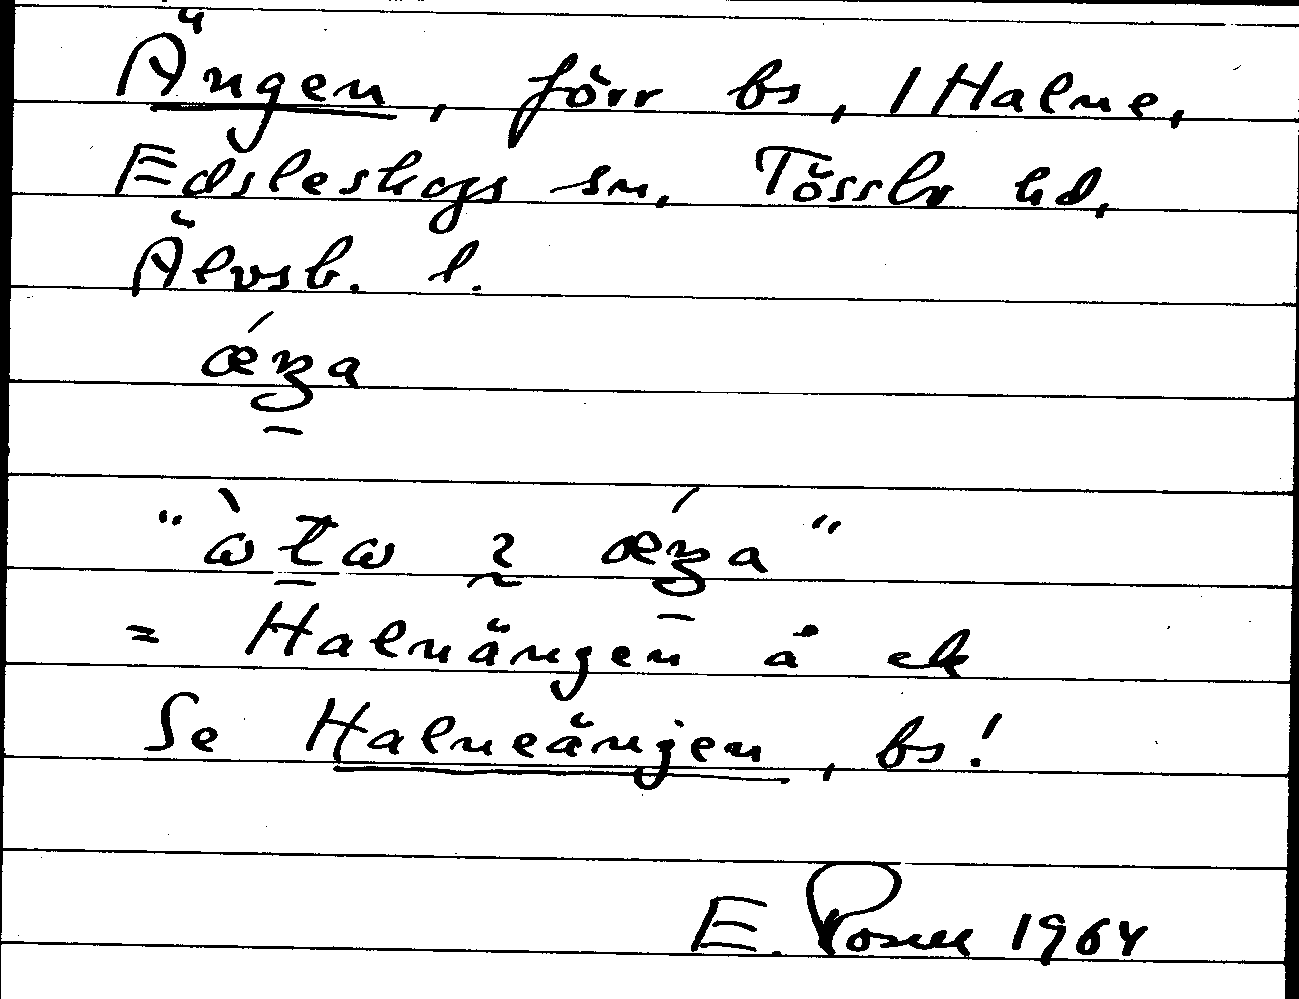 Ängen, förr bs, 1 Halne,
Edsleskogs sn. Tössbo hd,
Älvsb. l.
= Halnängen å ek
Se Halneängen, bs!
E. 1964